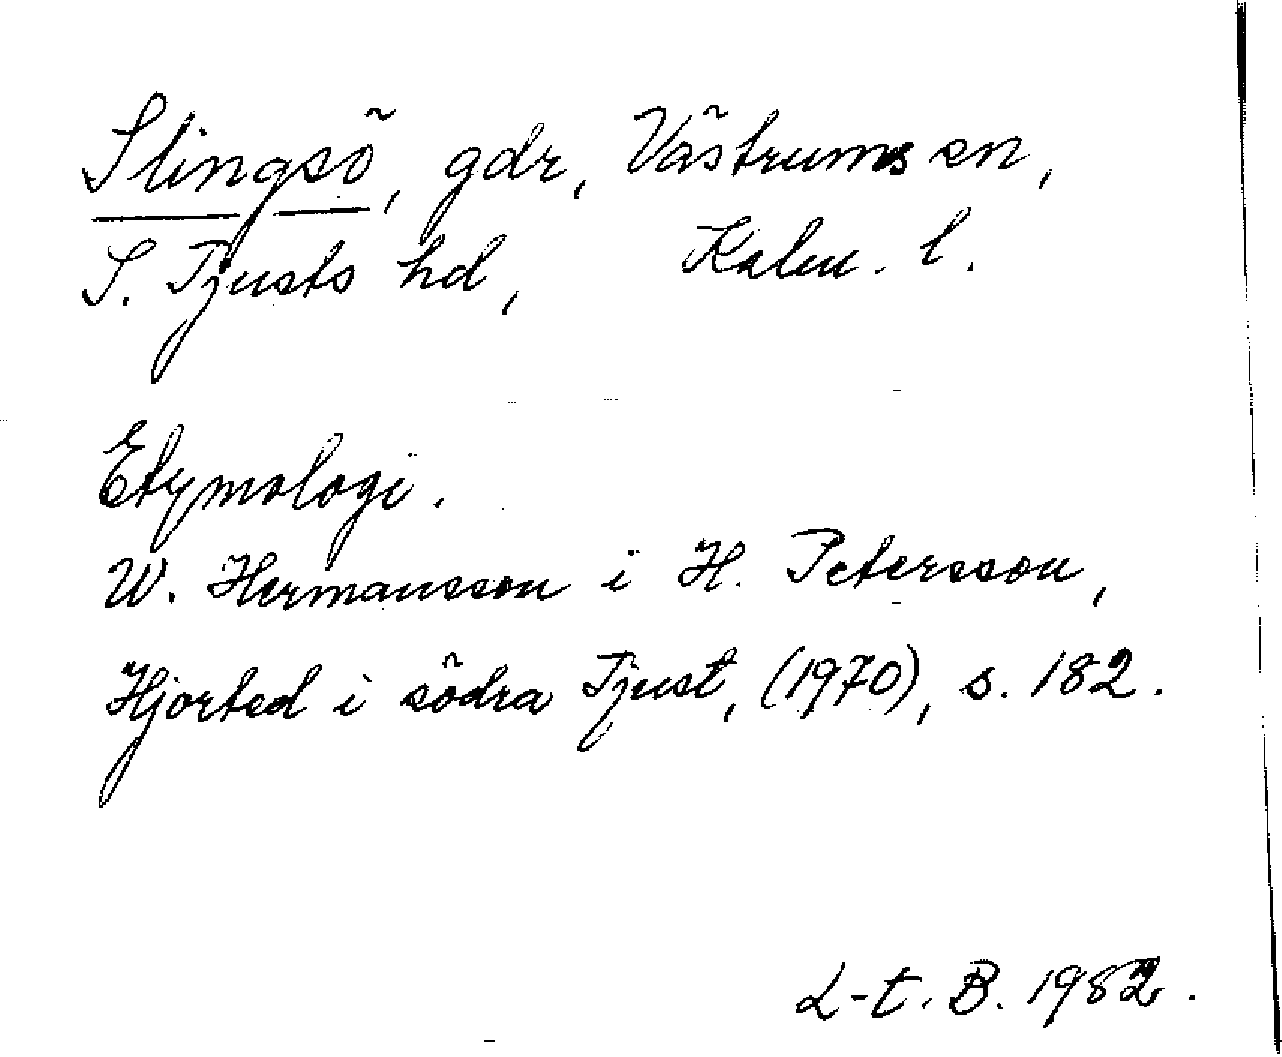 Slingsö, gdr, Västrums sn,
S. Tjusts hd, Kalm. l.
Etymologi.
W. Hermansson i H. Petersson,
Hjorted i södra Tjust, (1970), s. 182.
L-t. B. 1982.